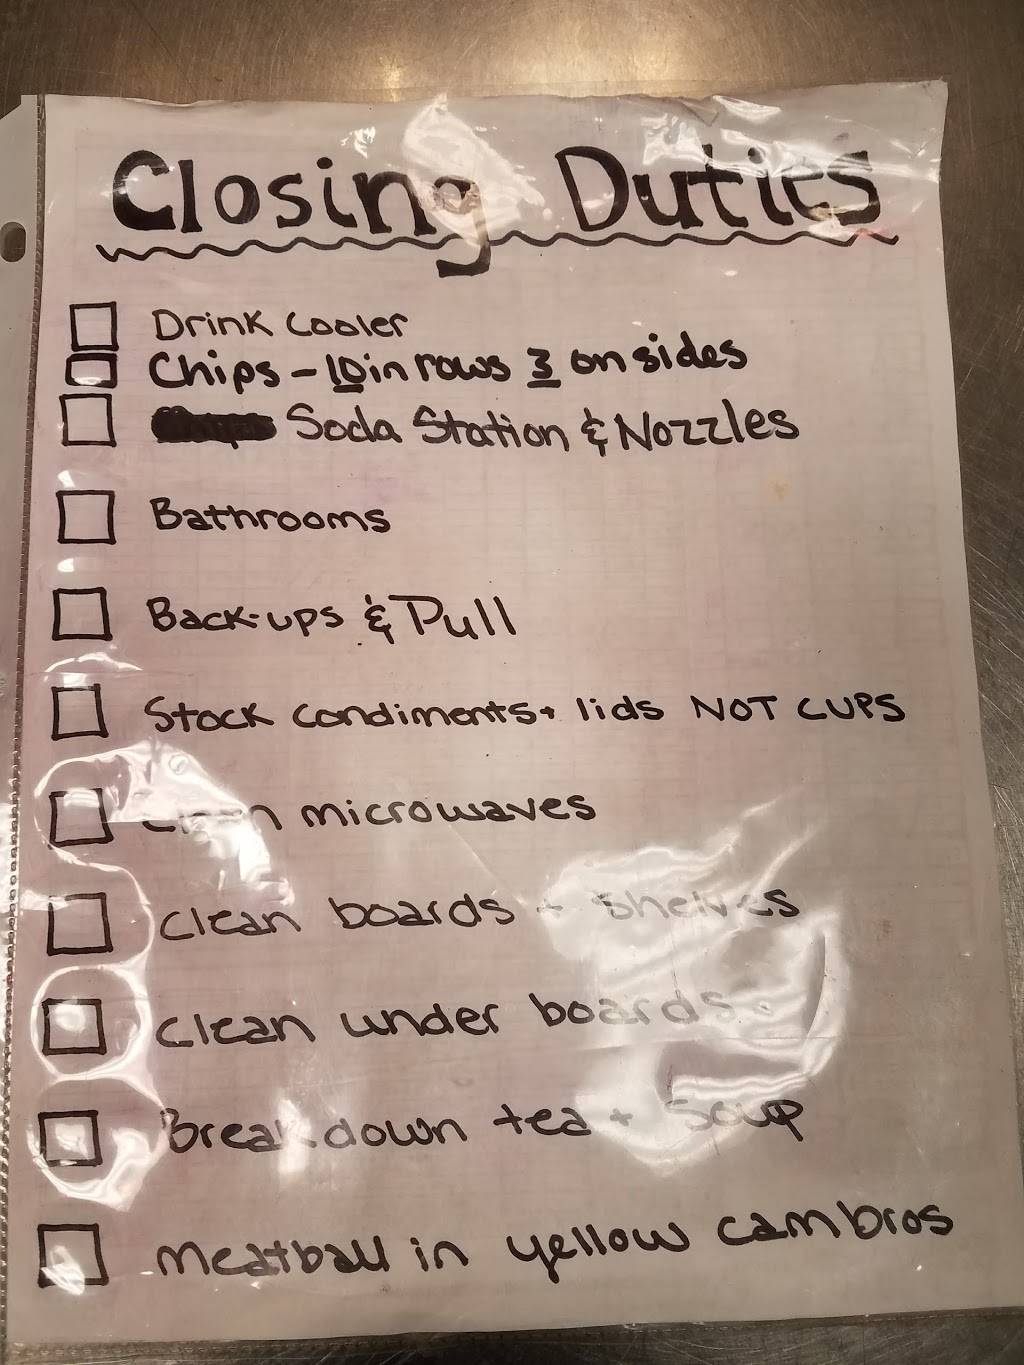 Closing Duties
Drink Cooler
Chips - 10 in rows 3 on sides
Soda Station & Nozzles
Bathrooms
Back-ups & Pull
Stock condiments + lids NOT CUPS
Clean microwaves
Clean boards + shelves
Clean under boards
Breakdown tea + soup
Meatball in yellow cambros